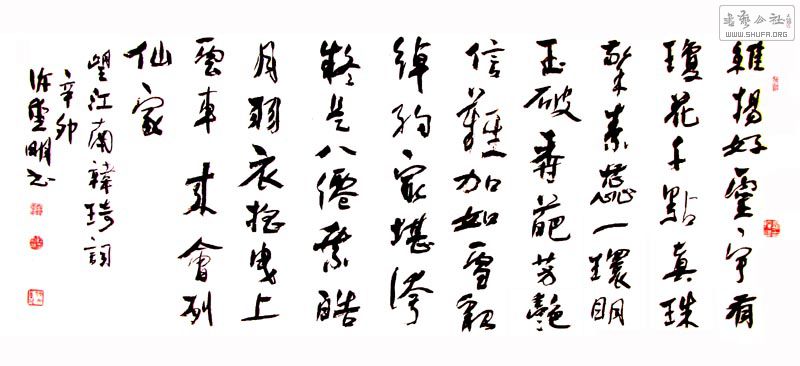 書藝公社
WWW.SHUFA.ORG
維揚好靈宇有
瓊花千點真珠
擎素蕊一環明
玉破香葩芳艷
信難加如雪貌
綽約最堪誇
疑是八僊乘皓
月羽衣搖曳上
雲車來會列
仙家
望江南韓琦詞
辛卯
許明书